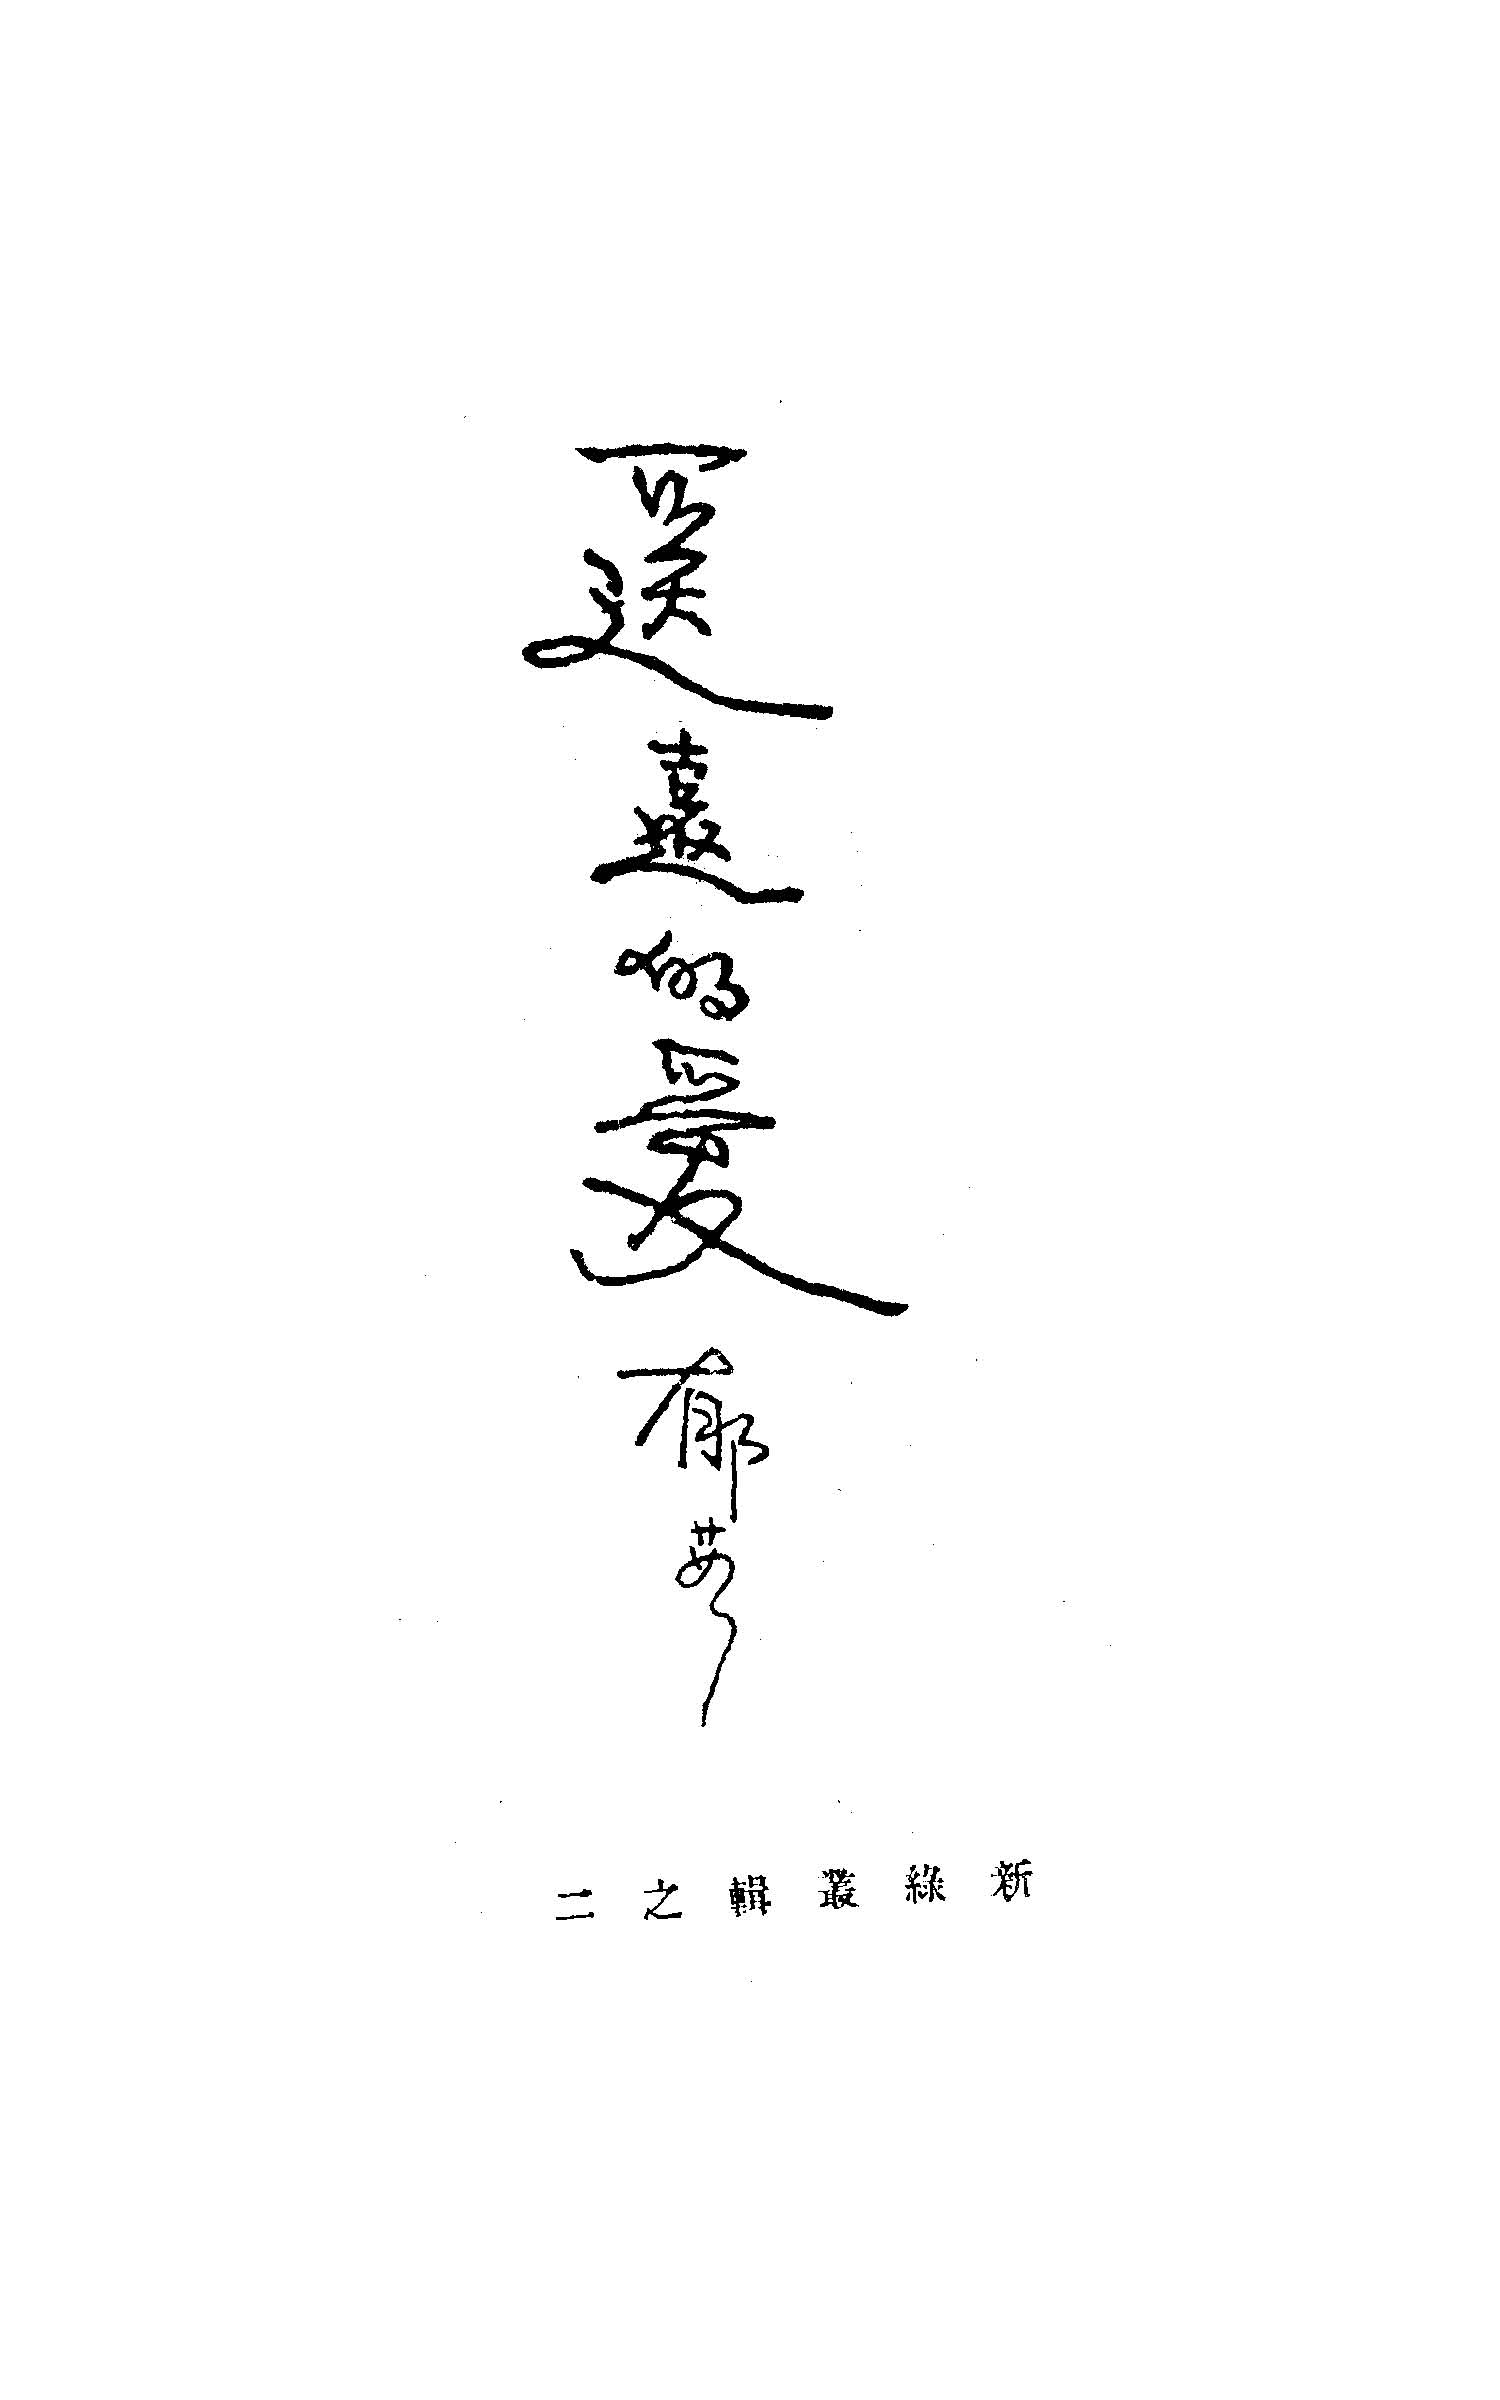 遙遠的愛
郁茹
新綠叢輯之二